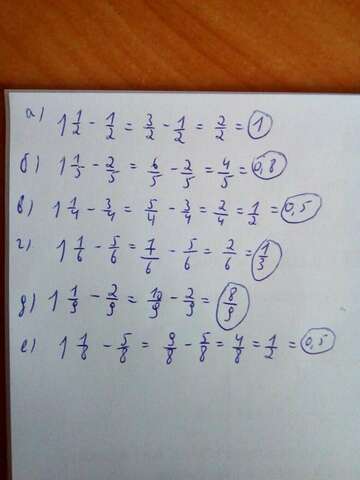 а) 1 1/2 - 1/2 = 3/2 - 1/2 = 2/2 = 1
б) 1 1/5 - 2/5 = 6/5 - 2/5 = 4/5 = 0,8
в) 1 1/4 - 3/4 = 5/4 - 3/4 = 2/4 = 1/2 = 0,5
г) 1 1/6 - 5/6 = 7/6 - 5/6 = 2/6 = 1/3
д) 1 1/9 - 2/9 = 10/9 - 2/9 = 8/9
е) 1 1/8 - 5/8 = 9/8 - 5/8 = 4/8 = 1/2 = 0,5